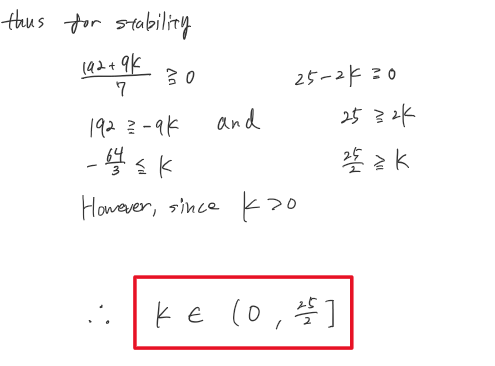 thus for stability
(192+9k)/7 ≥ 0    25-2k ≥ 0
192 ≥ -9k    and    25 ≥ 2k
-64/3 ≤ k    25/2 ≥ k
However, since k > 0
∴ k ∈ (0, 25/2]